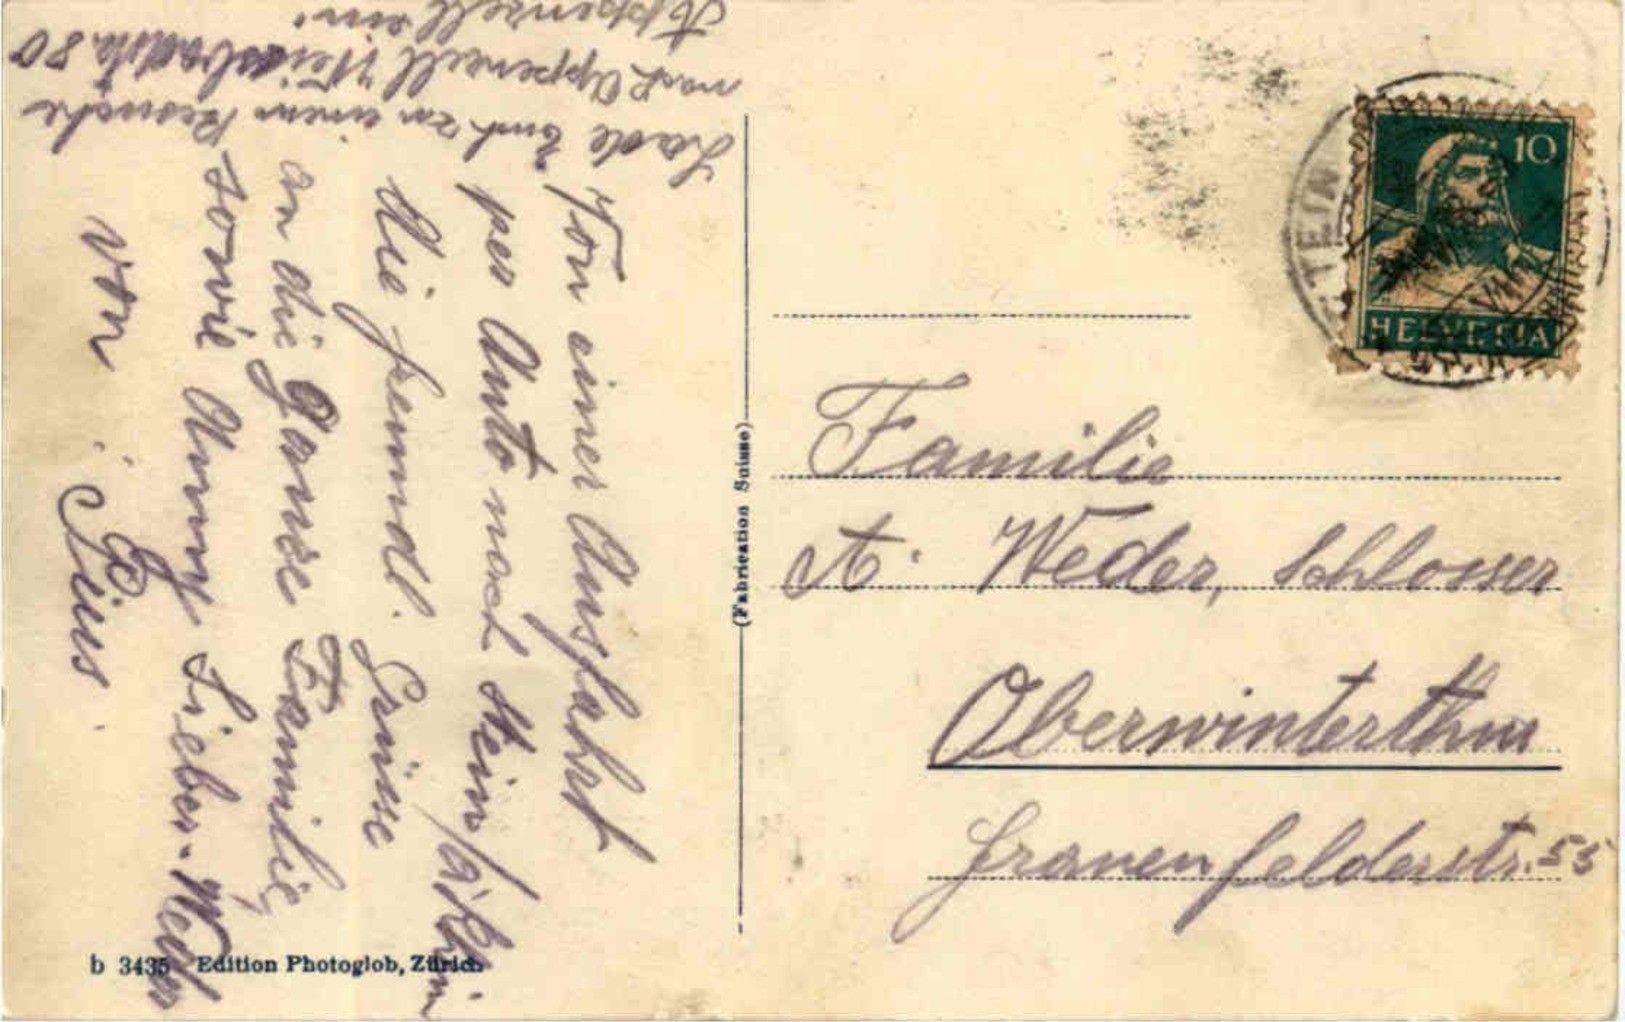 Von einer Ausfahrt
per Auto nach Stein a/Rhein
die freundl. Grüsse
an die ganze Familie
sowie Anny Lieber-Weder
von
Pius.
Lade Euch zu einem Besuche
nach Appenzell 80
Appenzell ein!
(Fabrication Suisse)
b 3435 Edition Photoglob, Zürich
10
HELVETIA
STEIN
Familie
A. Weder, Schlosser
Oberwinterthur
Frauenfelderstr. 55